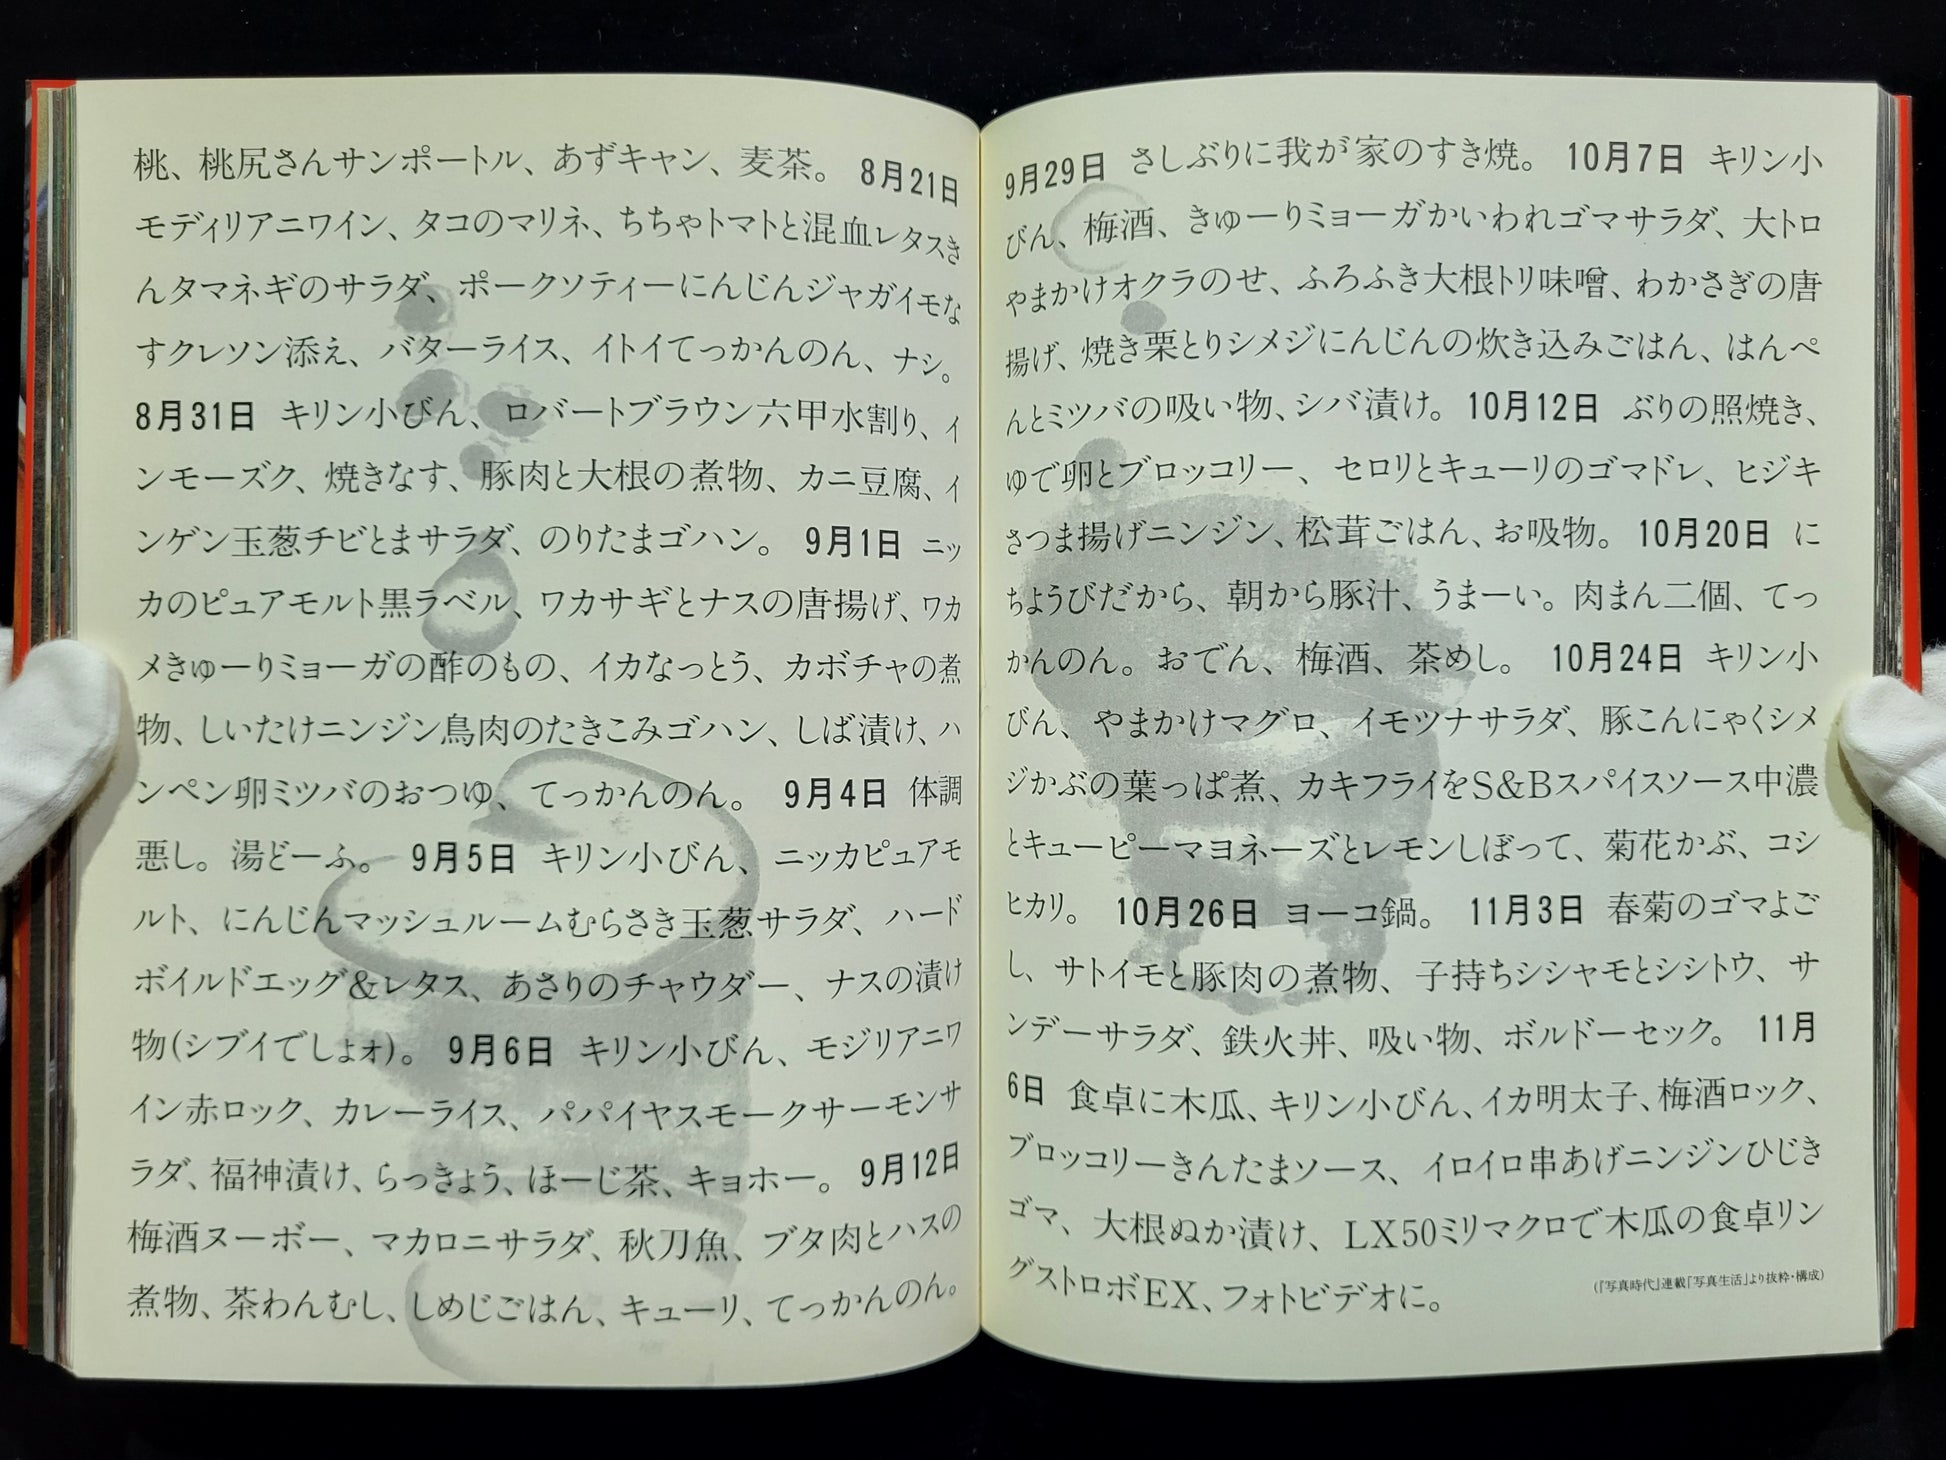 桃、桃尻さんサンポートル、あずキャン、麦茶。 8月21日
モディリアニワイン、タコのマリネ、ちちゃトマトと混血レタスき
んタマネギのサラダ、ポークソティーにんじんジャガイモな
すクレソン添え、バターライス、イトイてっかんのん、ナシ。
8月31日 キリン小びん、ロバートブラウン六甲水割り、イ
ンモーズク、焼きなす、豚肉と大根の煮物、カニ豆腐、イ
ンゲン玉葱チビとまサラダ、のりたまゴハン。 9月1日 ニッ
カのピュアモルト黒ラベル、ワカサギとナスの唐揚げ、ワカ
メきゅーりミョーガの酢のもの、イカなっとう、カボチャの煮
物、しいたけニンジン鳥肉のたきこみゴハン、しば漬け、ハ
ンペン卵ミツバのおつゆ、てっかんのん。 9月4日 体調
悪し。湯どーふ。 9月5日 キリン小びん、ニッカピュアモ
ルト、にんじんマッシュルームむらさき玉葱サラダ、ハード
ボイルドエッグ&レタス、あさりのチャウダー、ナスの漬け
物(シブイでしょォ)。 9月6日 キリン小びん、モジリアニワ
イン赤ロック、カレーライス、パパイヤスモークサーモンサ
ラダ、福神漬け、らっきょう、ほーじ茶、キョホー。 9月12日
梅酒ヌーボー、マカロニサラダ、秋刀魚、ブタ肉とハスの
煮物、茶わんむし、しめじごはん、キューリ、てっかんのん。
9月29日 さしぶりに我が家のすき焼。 10月7日 キリン小
びん、梅酒、きゅーりミョーガかいわれゴマサラダ、大トロ
やまかけオクラのせ、ふろふき大根トリ味噌、わかさぎの唐
揚げ、焼き栗とりシメジにんじんの炊き込みごはん、はんぺ
んとミツバの吸い物、シバ漬け。 10月12日 ぶりの照焼き、
ゆで卵とブロッコリー、セロリとキューリのゴマドレ、ヒジキ
さつま揚げニンジン、松茸ごはん、お吸物。 10月20日 に
ちようびだから、朝から豚汁、うまーい。肉まん二個、てっ
かんのん。おでん、梅酒、茶めし。 10月24日 キリン小
びん、やまかけマグロ、イモツナサラダ、豚こんにゃくシメ
ジかぶの葉っぱ煮、カキフライをS&Bスパイスソース中濃
とキューピーマヨネーズとレモンしぼって、菊花かぶ、コシ
ヒカリ。 10月26日 ヨーコ鍋。 11月3日 春菊のゴマよご
し、サトイモと豚肉の煮物、子持ちシシャモとシシトウ、サ
ンデーサラダ、鉄火丼、吸い物、ボルドーセック。 11月
6日 食卓に木瓜、キリン小びん、イカ明太子、梅酒ロック、
ブロッコリーきんたまソース、イロイロ串あげニンジンひじき
ゴマ、大根ぬか漬け、LX50ミリマクロで木瓜の食卓リン
グストロボEX、フォトビデオに。
(『写真時代』連載「写真生活」より抜粋・構成)